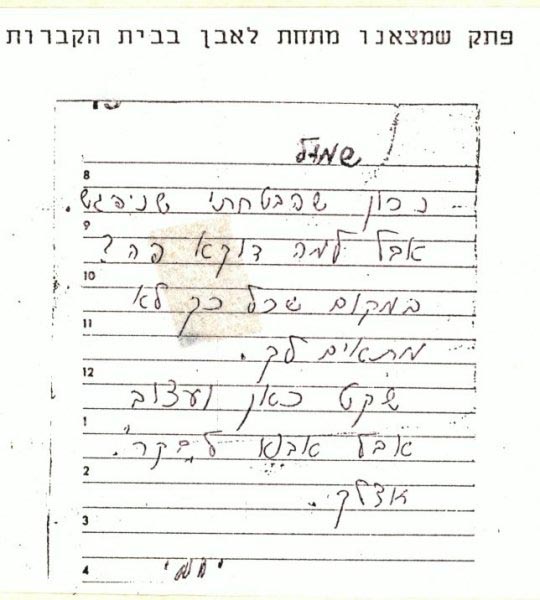 פתק שמצאנו מתחת לאבן בבית הקברות
שמול
8
נכון שהבטחתי שניפגש.
9
אבל למה דוקא פה?
10
במקום שכל כך לא
11
מתאים לך.
12
שקט כאן ועצוב
1
אבל אבוא לבקר.
2
אצלך.
3
4